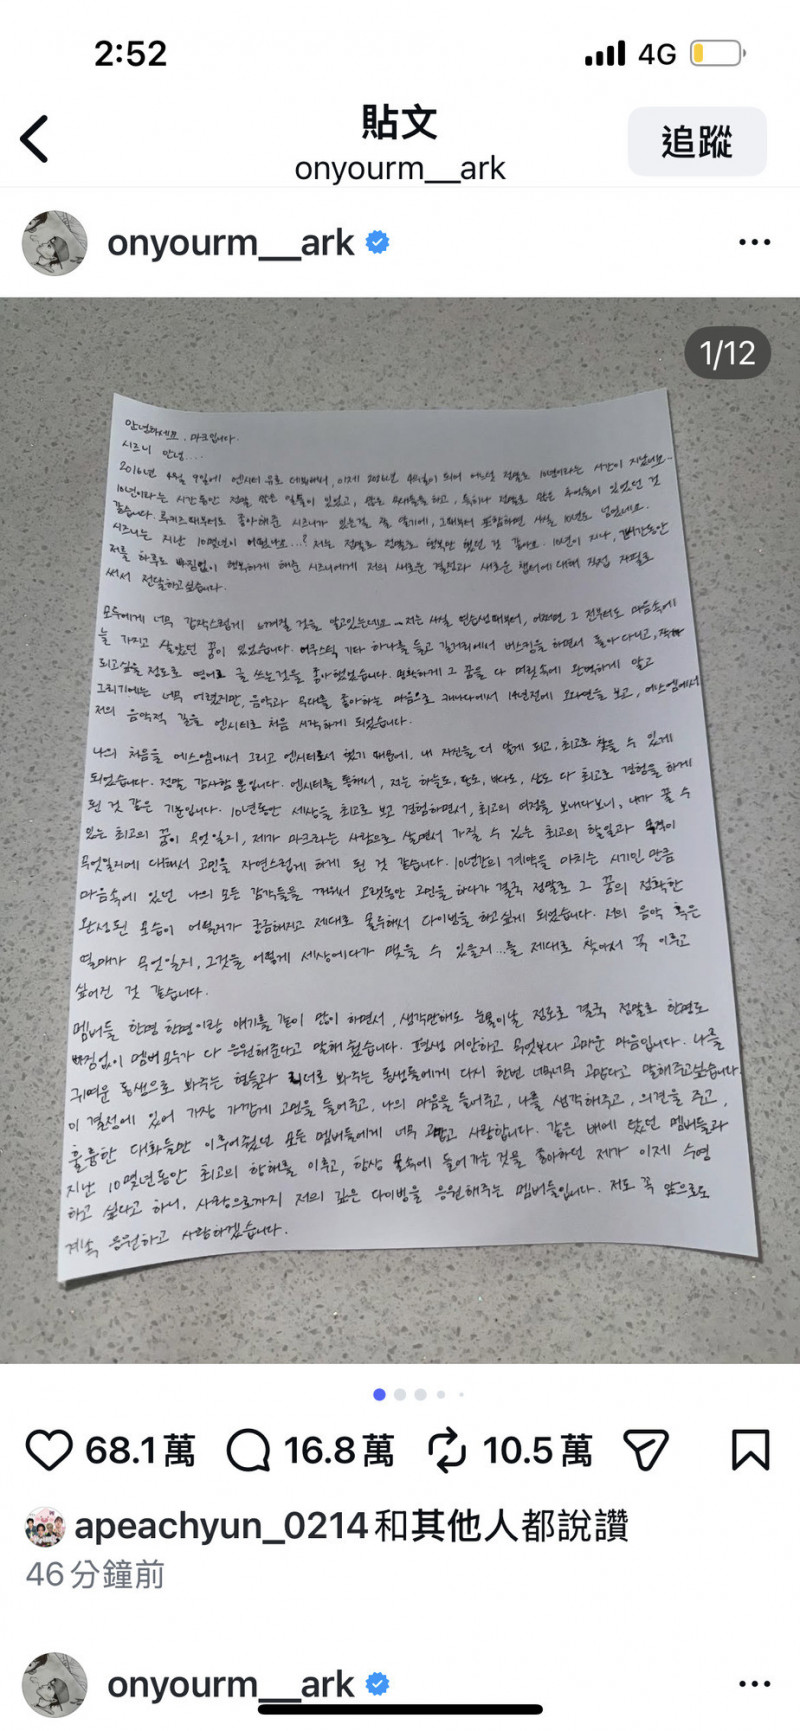 2:52
4G
貼文
onyourm__ark
追蹤
onyourm__ark
1/12
안녕하세요, 마크입니다.
시즈니 안녕....
2016년 4월 9일에 엔시티 유로 데뷔해서, 이제 2026년 4월이 되어 어느덧 정말로 10년이라는 시간이 지났네요..
10년이라는 시간동안 정말 많은 일들이 있었고, 많은 무대들을 하고, 특히나 정말로 많은 추억들이 있었던 것
같습니다. 루키즈때부터도 좋아해준 시즈니가 있는걸 잘 알기에, 그때부터 포함하면 사실 10년도 넘었네요.
시즈니는 지난 10몇년이 어땠나요...? 저는 정말로 정말로 행복만 했던 것 같아요. 10년이 지나,
저를 하루도 빠짐없이 행복하게 해준 시즈니에게 저의 새로운 결정과 새로운 챕터에 대해 직접 자필로
써서 전달하고싶습니다.
모두에게 너무 갑작스럽게 느껴질 것을 알고있는데요 저는 사실 연습생때부터, 어쩌면 그 전부터도 마음속에
늘 가지고 살았던 꿈이 있었습니다. 어쿠스틱 기타 하나를 들고 길거리에서 버스킹을 하면서 돌아다니고,
되고싶을 정도로 영어로 글 쓰는것을 좋아했었습니다. 명확하게 그 꿈을 다 머릿속에 완벽하게 알고
그리기에는 너무 어렸지만, 음악과 무대를 좋아하는 마음으로 캐나다에서 14년전에 오디션을 보고, 에스엠에서
저의 음악적 길을 엔시티로 처음 시작하게 되었습니다.
나의 처음을 에스엠에서 그리고 엔시티로서 했기 때문에, 내 자신을 더 알게 되고, 최고로 찾을 수 있게
되었습니다. 정말 감사할 뿐입니다. 엔시티를 통해서, 저는 하늘도, 땅도, 바다도, 산도 다 최고로 경험을 하게
된 것 같은 기분입니다. 10년동안 세상을 최고로 보고 경험하면서, 최고의 여정을 보내다보니, 내가 꿀 수
있는 최고의 꿈이 무엇일지, 제가 마크라는 사람으로 살면서 가질 수 있는 최고의 할일과 목적이
무엇일지에 대해서 고민을 자연스럽게 하게 된 것 같습니다. 10년간의 계약을 마치는 시기인 만큼
마음속에 있던 나의 모든 감각들을 깨워서 오랫동안 고민을 하다가 결국 정말로 그 꿈의 정확한
완성된 모습이 어떨지가 궁금해지고 제대로 몰두해서 다이빙을 하고싶게 되었습니다. 저의 음악 혹은
열매가 무엇일지, 그것을 어떻게 세상에다가 맺을 수 있을지...를 제대로 찾아서 꼭 이루고
싶어진 것 같습니다.
멤버들 한명 한명이랑 얘기를 같이 많이 하면서, 생각만해도 눈물이날 정도로 결국 정말로 한명도
빠짐없이 멤버 모두가 다 응원해준다고 말해 줬습니다. 평생 미안하고 무엇보다 고마운 마음입니다. 나를
귀여운 동생으로 봐주는 형들과 리더로 봐주는 동생들에게 다시 한번 너무너무 고맙다고 말해주고싶습니다.
이 결정에 있어 가장 가깝게 고민을 들어주고, 나의 마음을 들어주고, 나를 생각해주고, 의견을 주고,
훌륭한 대화들만 이루어줬던 모든 멤버들에게 너무 고맙고 사랑합니다. 같은 배에 탔던 멤버들과
지난 10몇년동안 최고의 항해를 이루고, 항상 물속에 들어가는 것을 좋아하던 제가 이제 수영
하고 싶다고 하니, 사랑으로까지 저의 깊은 다이빙을 응원해주는 멤버들입니다. 저도 꼭 앞으로도
계속 응원하고 사랑하겠습니다.
68.1萬 16.8萬 10.5萬
apeachyun_0214和其他人都說讚
46分鐘前
onyourm__ark